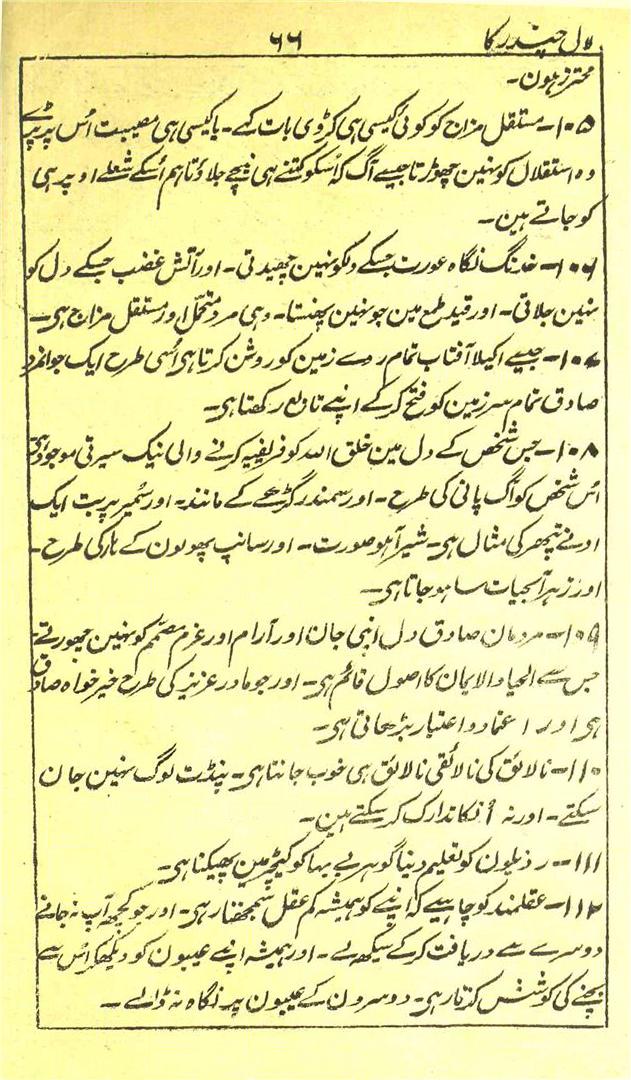 لال چندر کا ۶۶
محترز ہون۔
۱۰۵۔ مستقل مزاج کو کوئی کیسی ہی کڑوی بات کہے۔ یا کیسی ہی مصیبت اُس پر پڑے
وہ استقلال کو نہین چھوڑتا جیسے آگ کہ اُسکو کتنے ہی نیچے جلاؤ تاہم اُسکے شعلے اوپر ہی
کو جاتے ہین۔
۱۰۶۔ خدنگ نگاہ عورت جسکے دلکو نہین چھیدتی۔ اور آتش غضب جسکے دل کو
نہین جلاتی۔ اور قید طمع مین جو نہین پھنستا۔ وہی مرد متحمل اور مستقل مزاج ہی۔
۱۰۷۔ جیسے اکیلا آفتاب تمام روے زمین کو روشن کرتا ہی اُسی طرح ایک جوانمرد
صادق تمام سرزمین کو فتح کر کے اپنے تابع رکھتا ہی۔
۱۰۸۔ جس شخص کے دل مین خلق اللہ کو فریفتہ کرنے والی نیک سیرتی موجود ہی
اُس شخص کو آگ پانی کی طرح۔ اور سمندر گڑھے کے مانند۔ اور سُمیر پربت ایک
ادنے پتھر کی مثال ہی۔ شیر آہو صورت۔ اور سانپ پھولون کے ہار کی طرح۔
اور زہر آبحیات سا ہو جاتا ہی۔
۱۰۹۔ مردمان صادق دل اپنی جان اور آرام اور عزم مصمم کو نہین چھوڑتے۔
جس سے الحیاء والایمان کا اصول قائم ہی۔ اور جو مادر عزیز کی طرح خیر خواہ صادق
ہی اور اعتماد و اعتبار بڑھاتی ہی۔
۱۱۰۔ نالائق کی نالائقی نالائق ہی خوب جانتا ہی۔ پنڈت لوگ نہین جان
سکتے۔ اور نہ اُنکا تدارک کر سکتے ہین۔
۱۱۱۔ رذیلون کو تعلیم دینا گوہر بے بہا کو کیچڑ مین پھیکنا ہی۔
۱۱۲۔ عقلمند کو چاہیے کہ اپنے کو ہمیشہ کم عقل سمجھتا رہی۔ اور جو کچھ آپ نہ جانے
دوسرے سے دریافت کر کے سیکھ لے۔ اور ہمیشہ اپنے عیبون کو دیکھکر اُس سے
بچنے کی کوشش کرتا رہی۔ دوسرون کے عیبون پر نگاہ نہ ڈالے۔